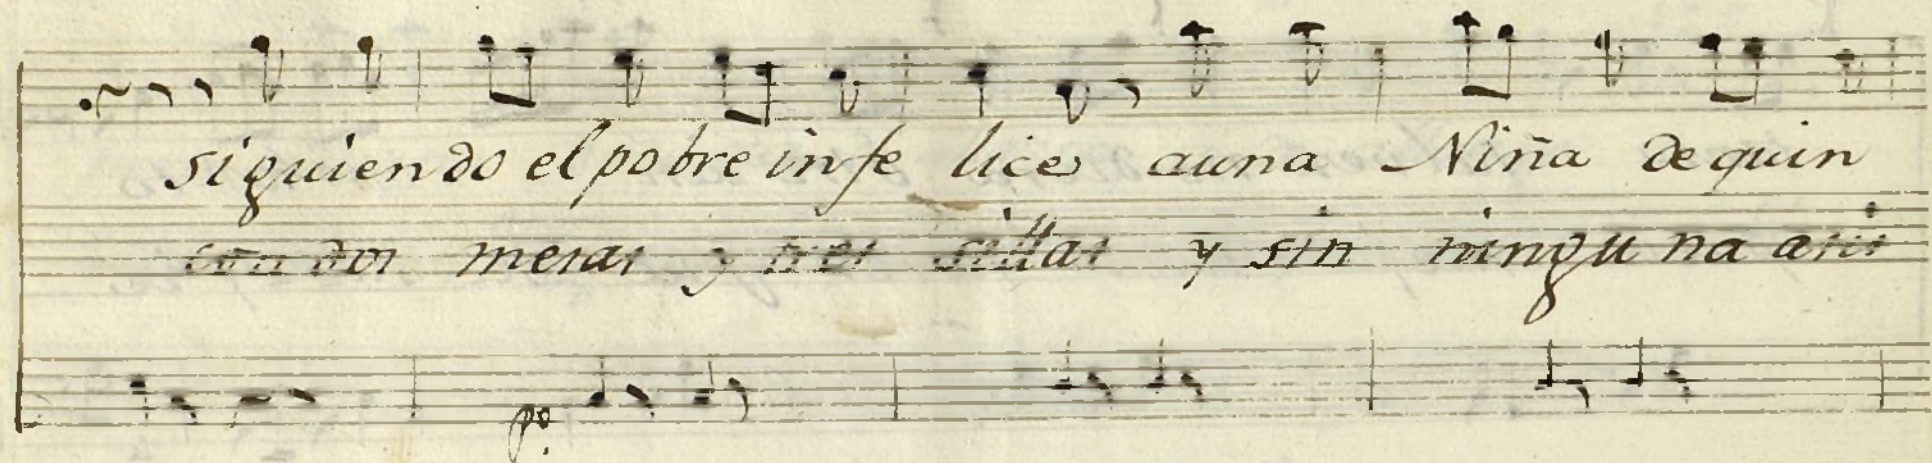 siguiendo el pobre infe lice auna Niña de quin
con dos mesas y tres sillas y sin ningu na
po.